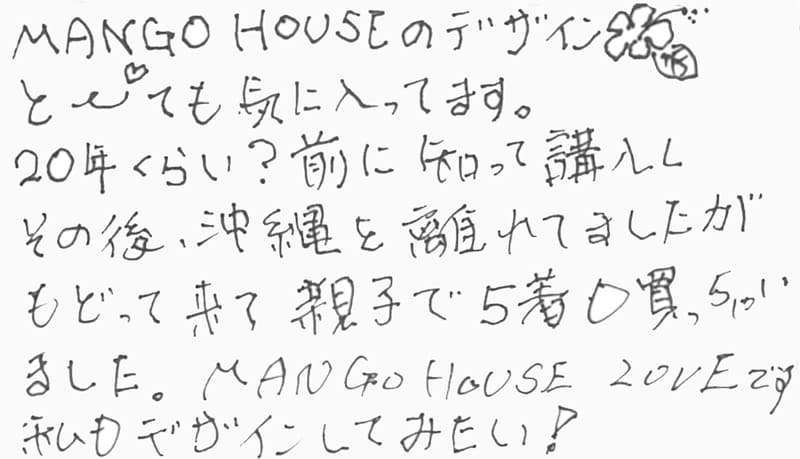 MANGO HOUSEのデザイン
と〜ても気に入ってます。
20年くらい？前に知って講入し
その後、沖縄を離れてましたが
もどって来て親子で5着買っちゃい
ました。MANGO HOUSE LOVEです
私もデザインしてみたい！